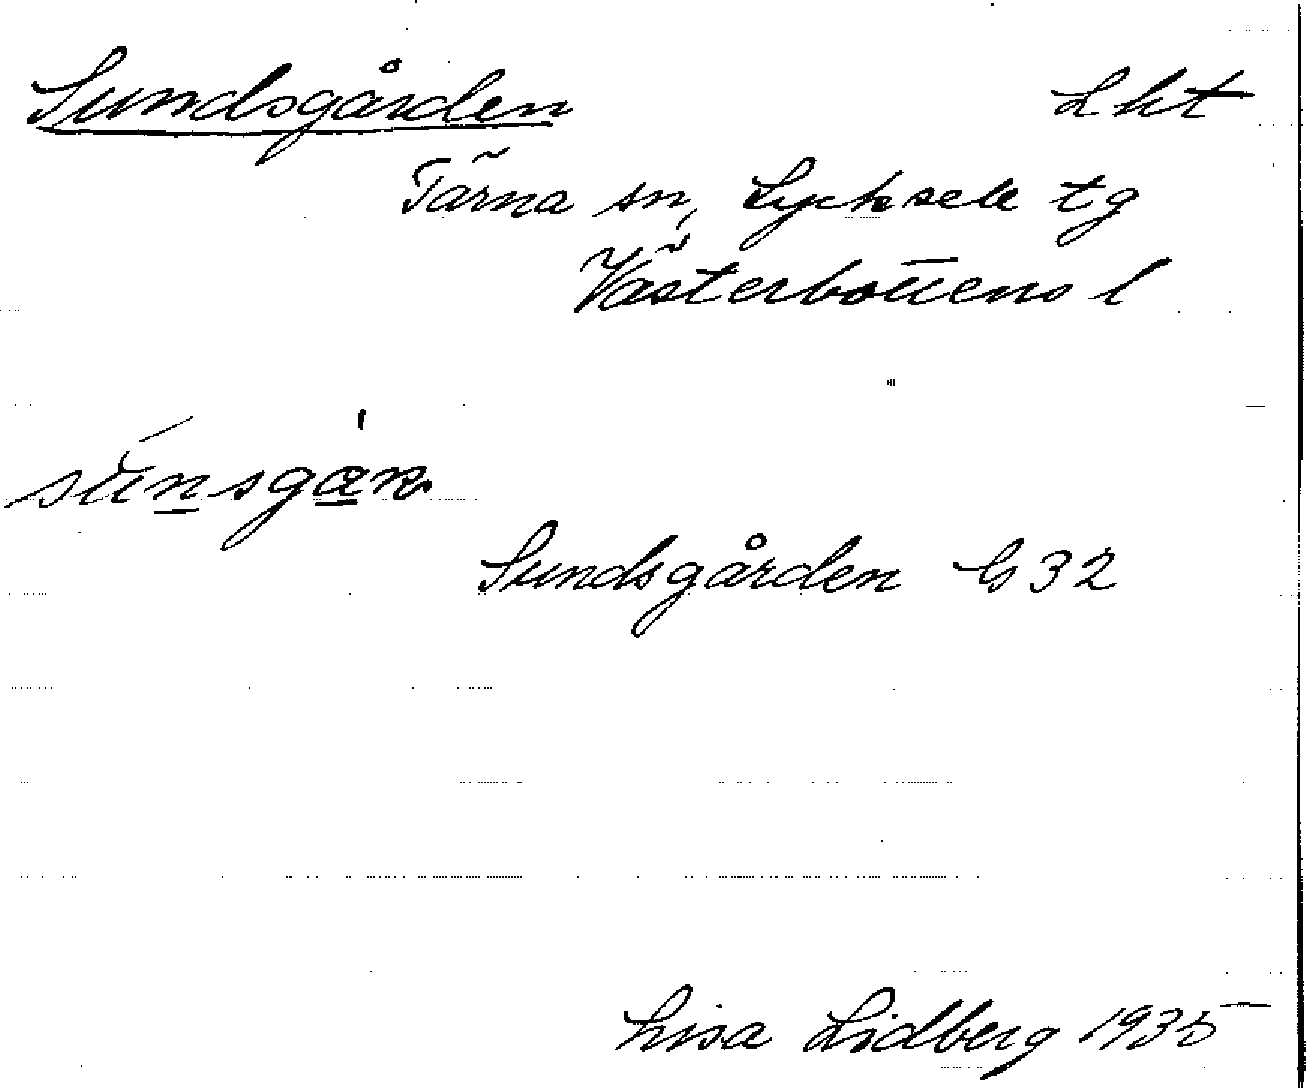 Sundsgården Lht
Tärna sn, Lycksele tg
Västerbottens l
Sundsgården G 32
Lisa Lidberg 1935